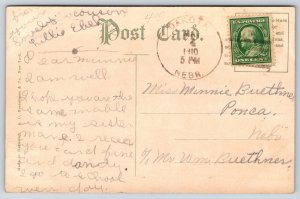 from
your cousin
Lillie Ebel
Post Card.
1910
5 PM
NEBR.
U.S. POSTAGE
ONE CENT
Dear Minnie
I am well
I hope you are the
same mable
is my sister
name I rece
you card fine
and dandy
I go to school
every day.
Miss Minnie Buethner
Ponca,
Nebr
c/o Mr Wm Buethner.